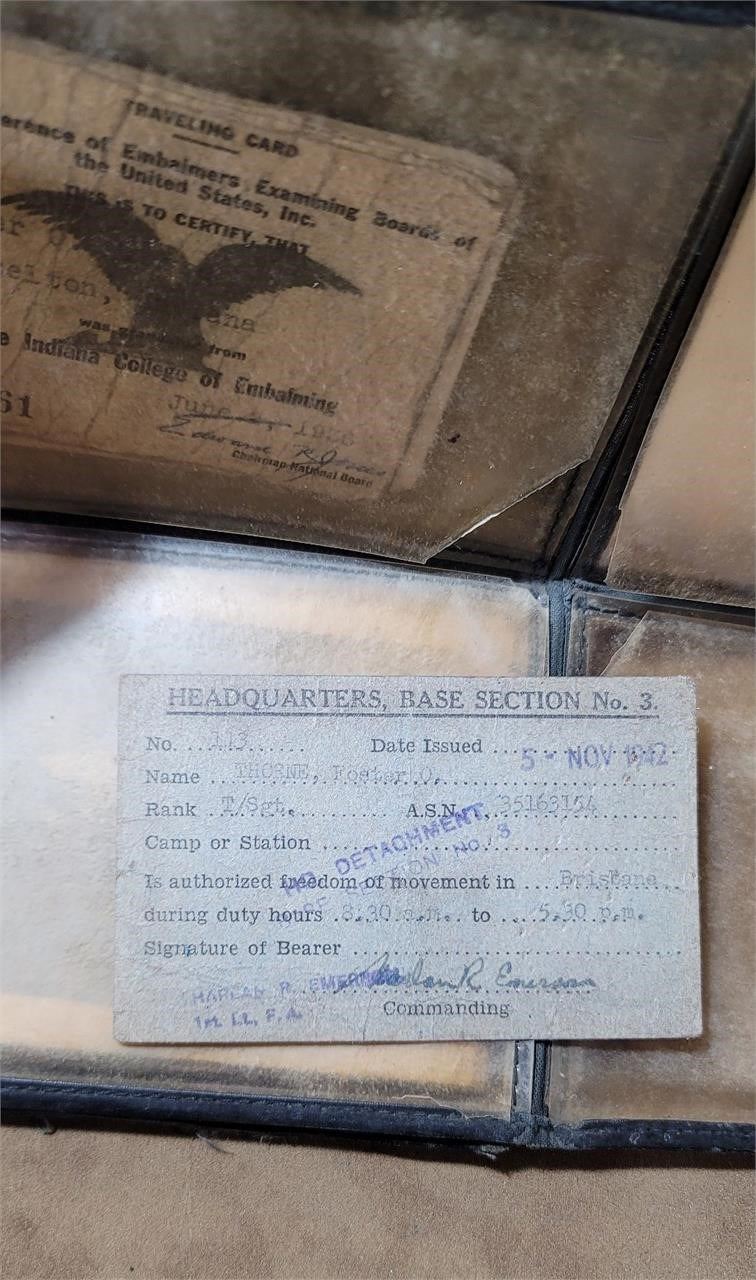 TRAVELING CARD
erence of Embalmers Examining Boards of
the United States, Inc.
THIS IS TO CERTIFY, THAT
elton, ana
was from
e Indiana College of Embalming
61
June
Chairman National Board
HEADQUARTERS, BASE SECTION No. 3.
No. ...113...... Date Issued ... 5 - NOV 1942
Name .. THORNE, Foster O.
Rank T/Sgt. A.S.N. 35163154
HQ DETACHMENT
Camp or Station
SECTION NO. 3
Is authorized freedom of movement in .... Brisbane
during duty hours .8.30 a.m. to ....5.30 p.m.
Signature of Bearer
HARLAN R. EMERSON Harlan R. Emerson
1st Lt. F.A.
Commanding